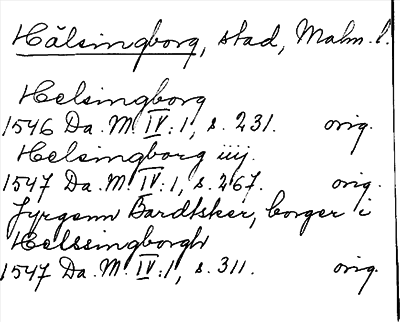 Hälsingborg, stad, Malm. l.
Helsingborg
1546 Da. M IV:1, s. 231. orig.
Helsingborg iiij.
1547 Da. M IV:1, s. 267. orig.
Jyrgenn Bardtsker, borger i
Helssingborgh
1547 Da. M IV:1, s. 311. orig.